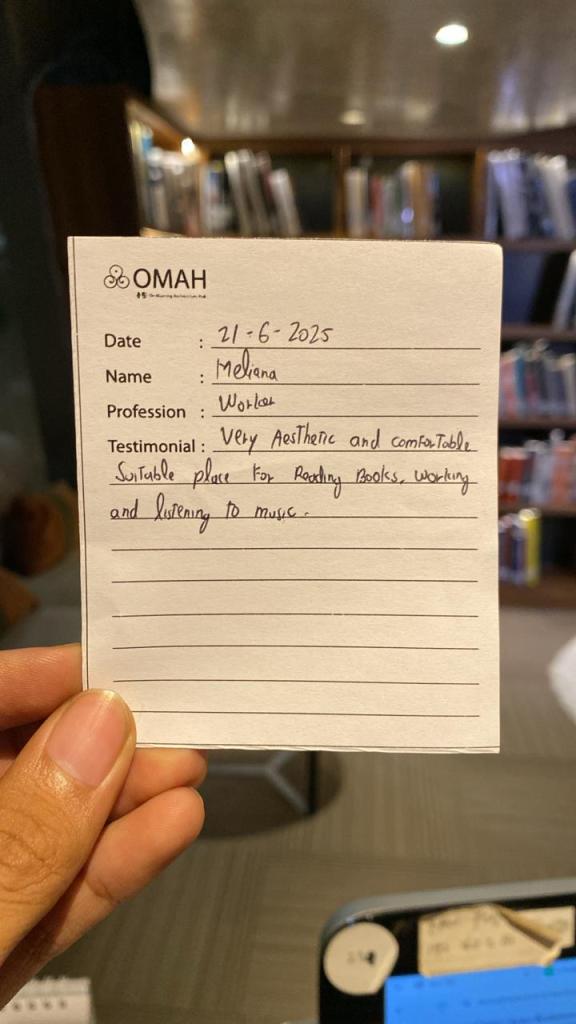 OMAH
Date : 21-6-2025
Name : Meliana
Profession : Worker
Testimonial : Very Aesthetic and comforTable
Suitable place For Reading Books, working
and listening to music.